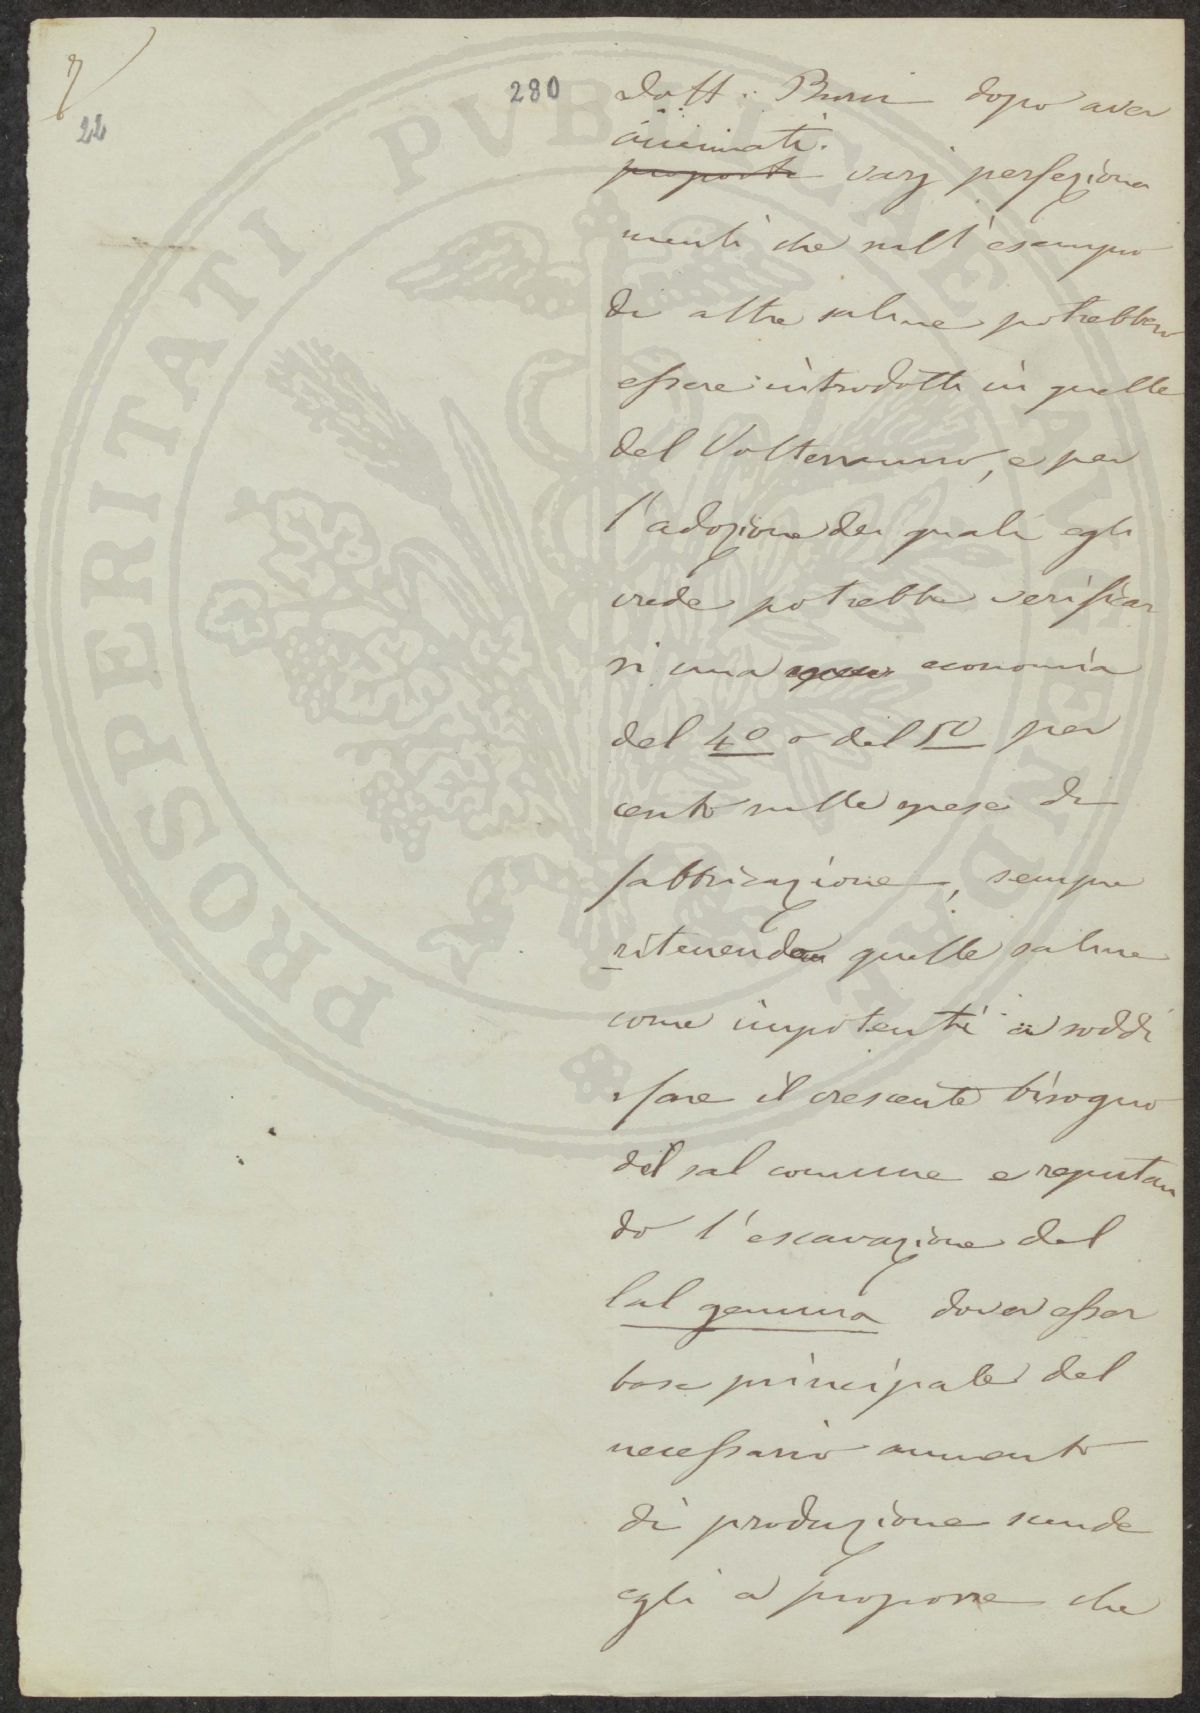 280
22
Dott: Buoni dopo aver
accennati
proposti varj perfeziona
menti che sull'esempio
di altre saline potrebbero
essere introdotti in quelle
del Volterrano, e per
l'adozione dei quali egli
crede potrebbe verificar
si una economia
del 40 o del 50 per
cento sulle spese di
fabbricazione, sempre
ritenendo quelle saline
come impotenti a soddi
sfare il crescente bisogno
del sal comune e reputan
do l'escavazione del
Sal gemma dover esser
base principale del
necessario aumento
di produzione scende
egli a proporre che
PROSPERITATI PVBLICAE AVGENDAE